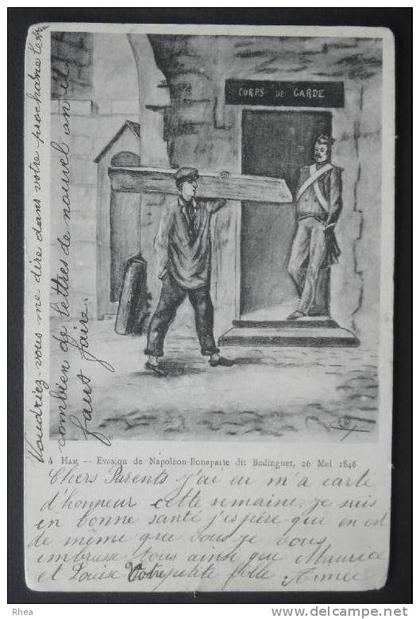 CORPS DE GARDE
4 HAM — Evasion de Napoléon-Bonaparte dit Badinguet, 26 Mai 1846
Voudriez-vous me dire dans votre prochaine
combien de lettres de nouvel an il
faut faire.
Chers Parents j'ai eu m'a carte
d'honneur cette semaine, je suis
en bonne santé j'espère que en est
de même que vous je vous
embrasse tous ainsi que Maurice
et Louise Votre petite fille
Rhea